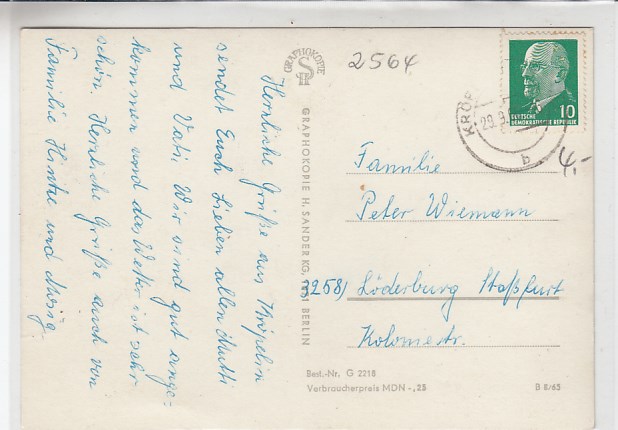 Herzliche Grüße aus Kröpelin
sendet Euch Lieben allen Mutti
und Vati. Wir sind gut ange-
kommen und das Wetter ist sehr
schön. Herzliche Grüße auch von
Familie Hintze und
GRAPHOKOPIE
GRAPHOKOPIE H. SANDER KG, BERLIN
2564
DEUTSCHE
DEMOKRATISCHE REPUBLIK
10
KRÖP
29.9.
b
4,-
Familie
Peter Wiemann
3258 Löderburg Staßfurt
Koloniestr.
Best.-Nr. G 2218
Verbraucherpreis MDN -,25
B 8/65